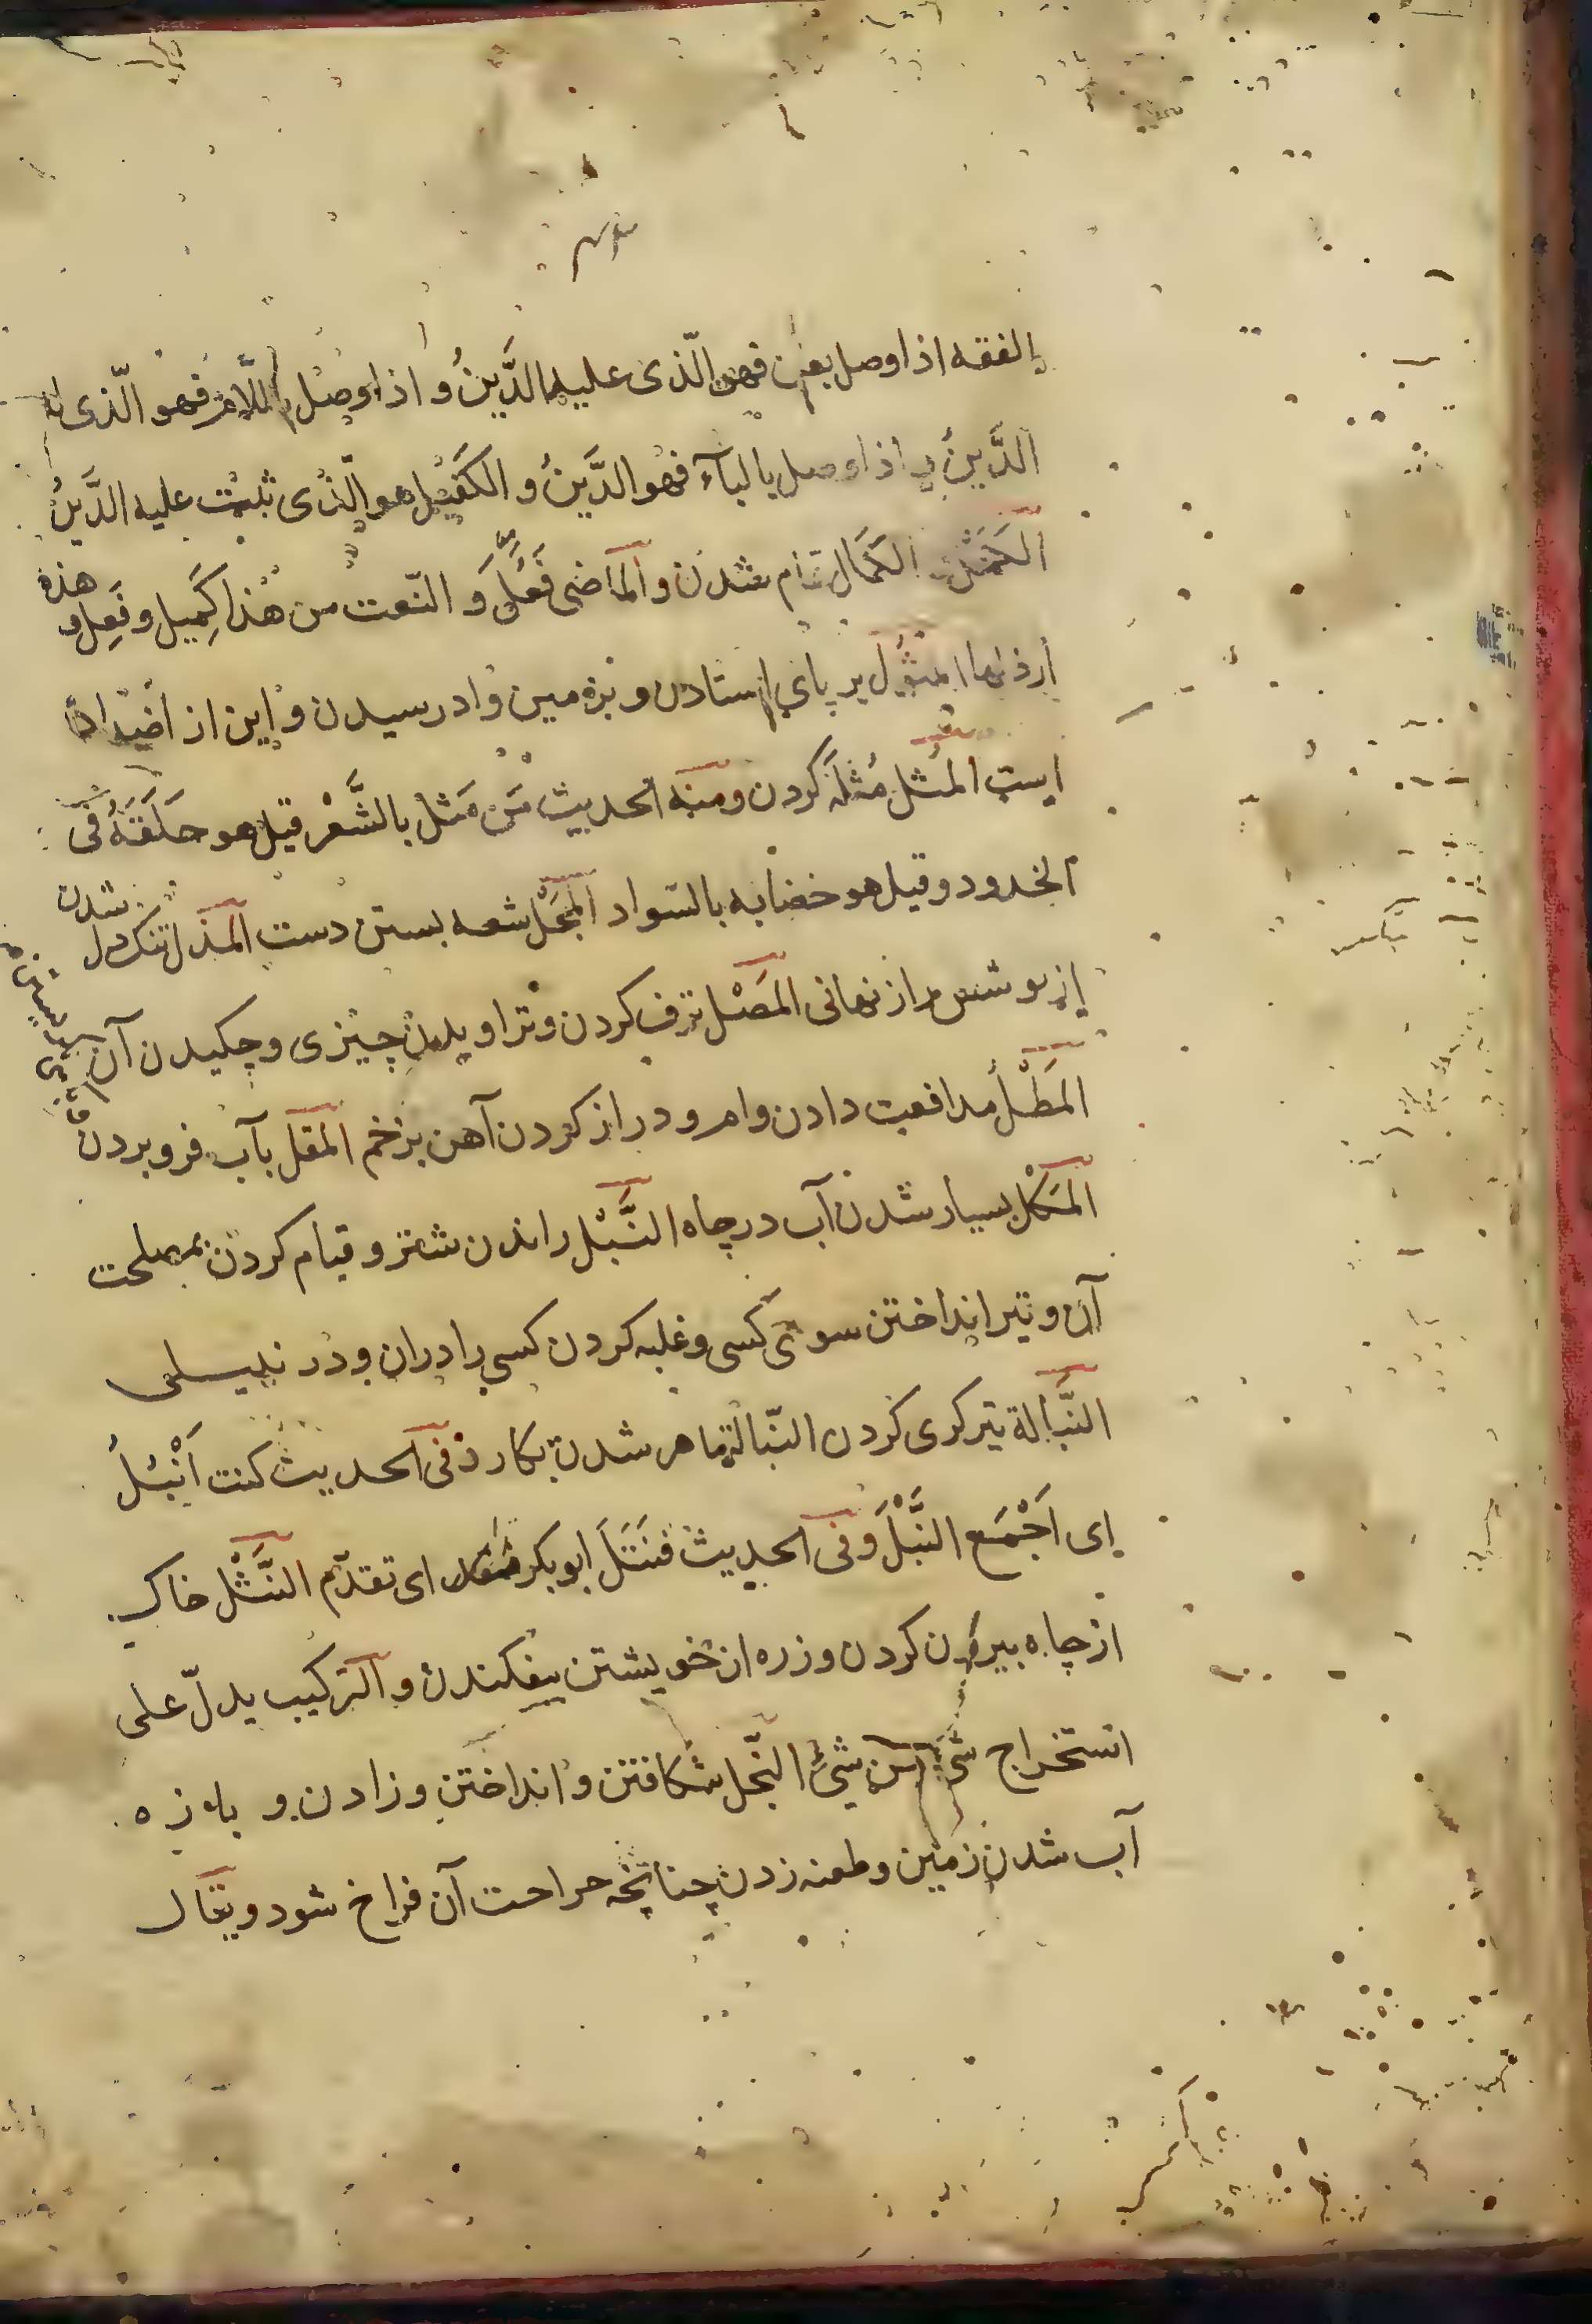 الفقه اذا وصل بعن فهو الّذى عليه الدَّينُ و اذا وصل باللّام فهو الّذى له
الدَّينُ و اذا وصل بالبآء فهو الدَّينُ و الكفيل هو الّذى ثبت عليه الدَّينُ
الكمال تمام شدن والماضى فَعل و النّعت من هذا كَمِيل و فَعِل و هذه
أرذلها المثول بر پاى استادن و بزمين وادوسيدن و اين از اضداد
است المَثل مُثلَه كردن ومنه الحديث مَن مَثل بالشَّعْر قيل هو حَلَقَهُ فى
الخدود و قيل هو خضابه بالسّواد المَجْل شعه بستن دست المذل تنك دل شدن
از پوشش راز نهانى المَصْل ترف كردن و تراويدن چيزى و چكيدن آن
المَطْل مدافعت دادن وام و دراز كردن آهن بزخم المقل بآب فرو بردن
المَكْل بسيار شدن آب در چاه النَّبْل راندن شتر و قيام كردن بمصلحت
آن و تير انداختن سوى كسى و غلبه كردن كسى را دران و در نبيسلى
النّبالة تير كرى كردن النّبالة ماهر شدن بكار و فى الحديث كنت اَنْبُلُ
اى اَجْمَع النَّبْلَ و فى الحديث فنَتَلَ ابو بكر اى تقدّم النَّثْل خاك
از چاه بيرون كردن و زره از خويشتن بيفكندن و التركيب يدلّ على
استخراج شىء من شىء النَّجل شكافتن و انداختن و زادن و باره
آب شدن زمين و طعنه زدن چنانچه جراحت آن فراخ شود و يقال